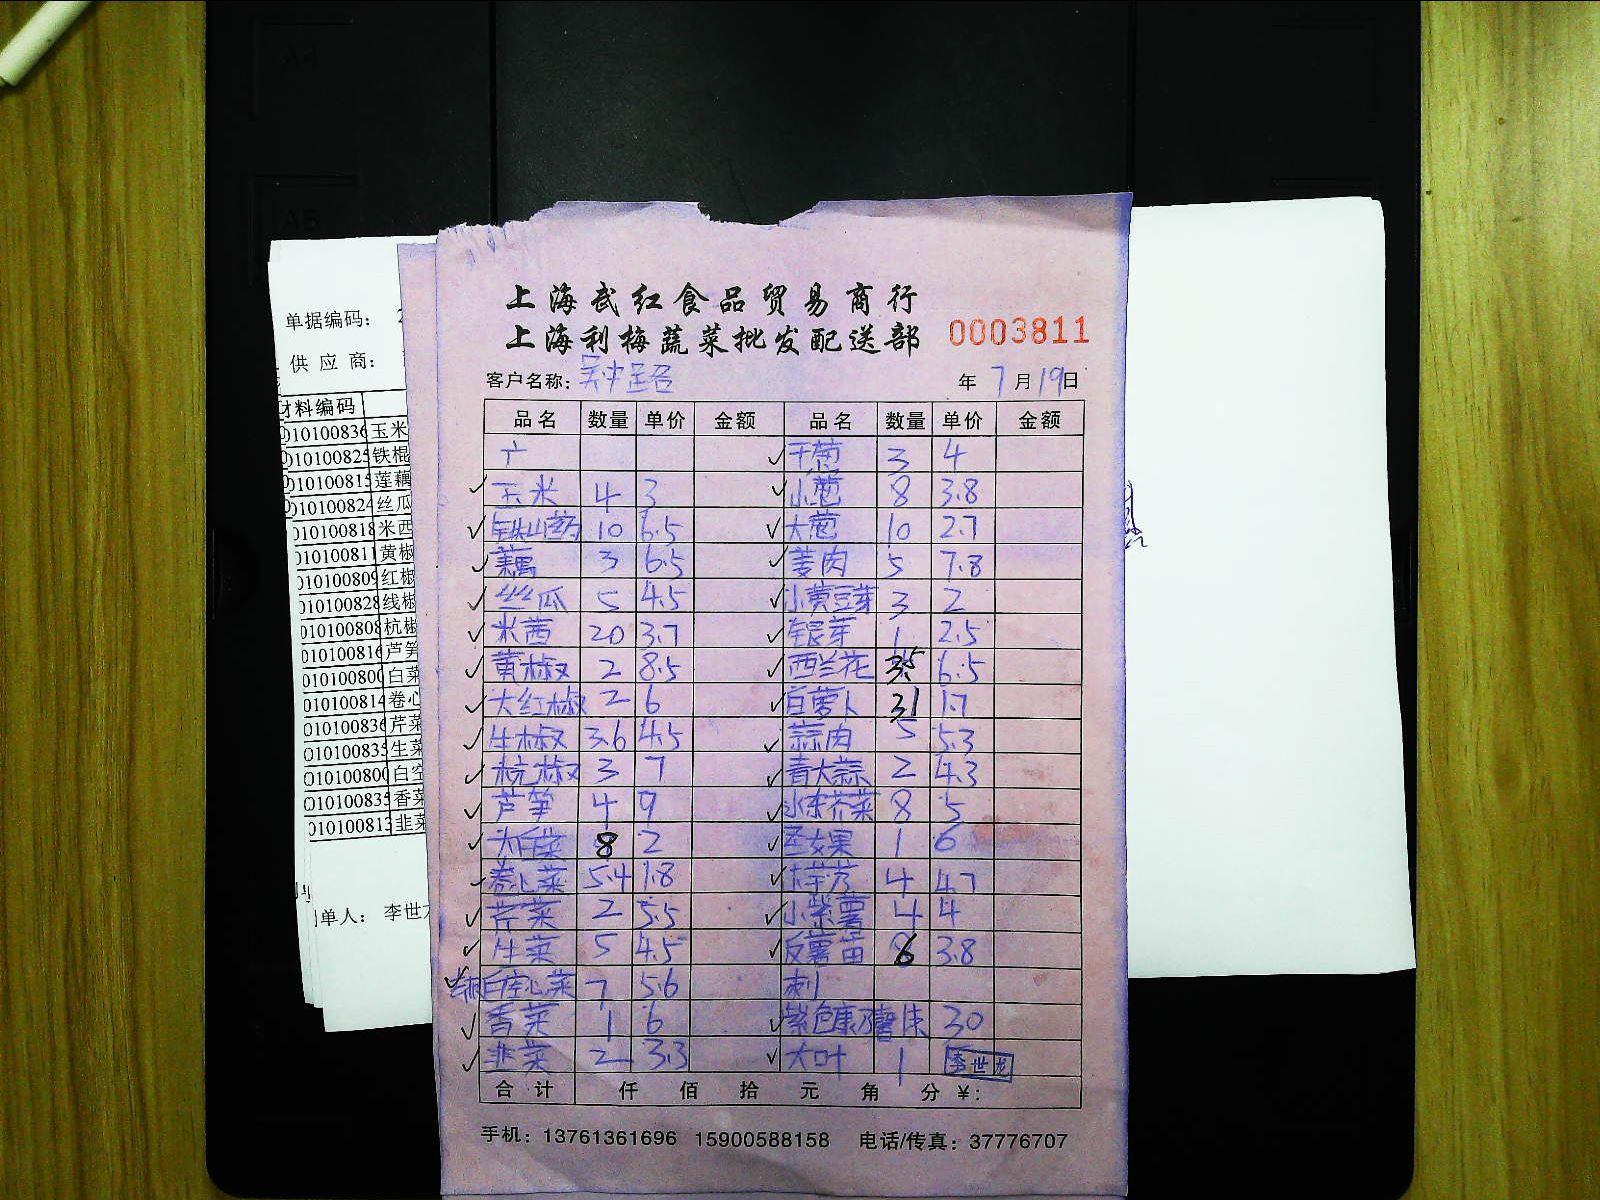 上海武红食品贸易商行
上海利梅蔬菜批发配送部
0003811
客户名称：
年 7月19日
品名 数量 单价 金额 品名 数量 单价 金额
干葱 3 4
玉米 4 3 小葱 8 3.8
铁山药 10 6.5 大葱 10 2.7
藕 3 6.5 姜肉 5 7.8
丝瓜 5 4.5 小黄豆芽 3 2
米茜 20 3.7 银芽 1 2.5
黄椒 2 8.5 西兰花 35 6.5
大红椒 2 6 白萝卜 31 1.7
牛椒 3.6 4.5 蒜肉 5 5.3
杭椒 3 7 青大蒜 2 4.3
芦笋 4 9 水东芥菜 8 5
大白菜 8 2 圣女果 1 6
卷心菜 5.4 1.8 芋艿 4 4.7
芹菜 2 5.5 小紫薯 4 4
生菜 5 4.5 反薯苗 6 3.8
白空心菜 7 5.6 刺
香菜 1 6 紫色康乃馨 30
韭菜 2 3.3 大叶 1
李世龙
合计 仟 佰 拾 元 角 分 ¥：
手机：13761361696 15900588158 电话/传真：37776707
单据编码：
供应商：
材料编码
010100836 玉米
010100825 铁棍
010100815 莲藕
010100824 丝瓜
010100818 米西
010100811 黄椒
010100809 红椒
010100828 线椒
010100808 杭椒
010100816 芦笋
01010080 白菜
010100814 卷心
010100836 芹菜
010100835 生菜
01010080 白空
010100835 香菜
010100813 韭菜
单人： 李世